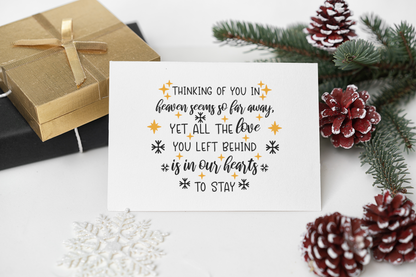 THINKING OF YOU IN
heaven seems so far away,
YET ALL THE love
YOU LEFT BEHIND
is in our hearts
TO STAY